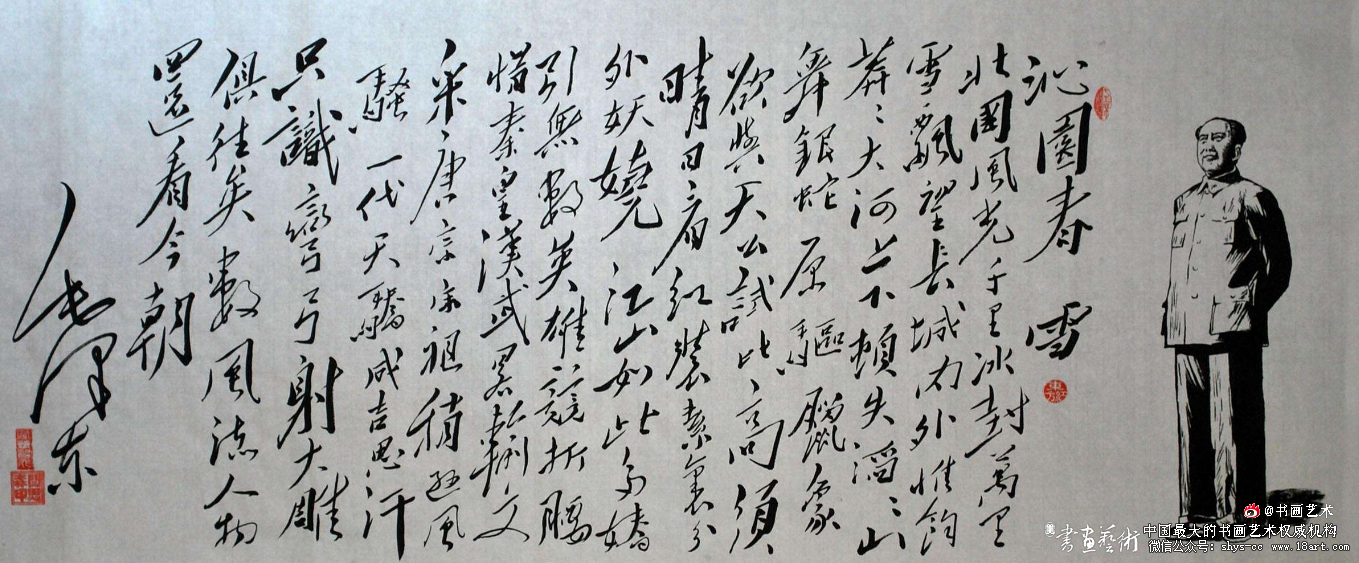 沁園春 雪
北國風光千里冰封萬里
雪飄望長城内外惟餘
莽〻大河上下頓失滔〻山
舞銀蛇原驅臘象
欲與天公試比高須
晴日看紅裝素裹分
外妖嬈 江山如此多嬌
引無數英雄競折腰
惜秦皇漢武畧輸文
采唐宗宋祖稍遜風
騷 一代天驕成吉思汗
只識彎弓射大雕
俱往矣數風流人物
還看今朝
毛澤东
@书画艺术
書畫藝術
中国最大的书画艺术权威机构
微信公众号：shys-cc www.18art.com